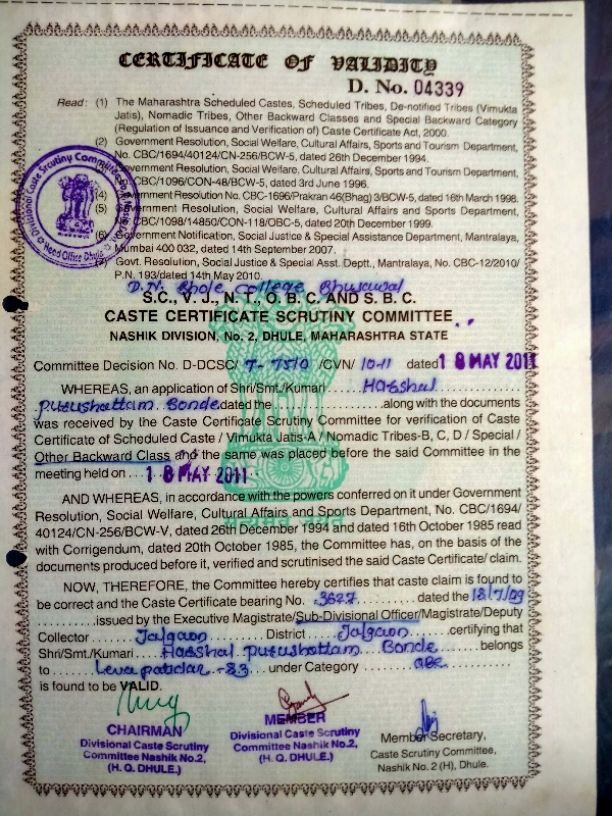 CERTIFICATE OF VALIDITY
D. No. 04339
Read: (1) The Maharashtra Scheduled Castes, Scheduled Tribes, De-notified Tribes (Vimukta
Jatis), Nomadic Tribes, Other Backward Classes and Special Backward Category
(Regulation of Issuance and Verification of) Caste Certificate Act, 2000.
(2) Government Resolution, Social Welfare, Cultural Affairs, Sports and Tourism Department,
No. CBC/1694/40124/CN-256/BCW-5, dated 26th December 1994.
Government Resolution, Social Welfare, Cultural Affairs, Sports and Tourism Department,
CBC/1096/CON-48/BCW-5, dated 3rd June 1996.
(4) Government Resolution No. CBC-1696/Prakran 46(Bhag) 3/BCW-5, dated 16th March 1998.
(5) Government Resolution, Social Welfare, Cultural Affairs and Sports Department,
CBC/1098/14850/CON-118/OBC-5, dated 20th December 1999.
(6) Government Notification, Social Justice & Special Assistance Department, Mantralaya,
Mumbai 400 032, dated 14th September 2007.
Govt. Resolution, Social Justice & Special Asst. Deptt., Mantralaya, No. CBC-12/2010/
P.N. 193/dated 14th May 2010.
Divisional Caste Scrutiny Committee
Head Office Dhule
D.N. Bhole College Bhusawal
S.C., V. J., N. T., O. B. C. AND S. B. C.
CASTE CERTIFICATE SCRUTINY COMMITTEE
NASHIK DIVISION, No. 2, DHULE, MAHARASHTRA STATE
Committee Decision No. D-DCSC/ 7-7510 /CVN/ 10-11 dated 18 MAY 2011
WHEREAS, an application of Shri/Smt./Kumari Harshal
Purushattam Bonde dated the along with the documents
was received by the Caste Certificate Scrutiny Committee for verification of Caste
Certificate of Scheduled Caste / Vimukta Jatis-A / Nomadic Tribes-B, C, D / Special /
Other Backward Class and the same was placed before the said Committee in the
meeting held on 18 MAY 2011
AND WHEREAS, in accordance with the powers conferred on it under Government
Resolution, Social Welfare, Cultural Affairs and Sports Department, No. CBC/1694/
40124/CN-256/BCW-V, dated 26th December 1994 and dated 16th October 1985 read
with Corrigendum, dated 20th October 1985, the Committee has, on the basis of the
documents produced before it, verified and scrutinised the said Caste Certificate/ claim.
NOW, THEREFORE, the Committee hereby certifies that caste claim is found to
be correct and the Caste Certificate bearing No. 3627 dated the 18/7/09
issued by the Executive Magistrate/Sub-Divisional Officer/Magistrate/Deputy
Collector Jalgaon District Jalgaon certifying that
Shri/Smt./Kumari Harshal Purushattam Bonde belongs
to Leva patidar -83 under Category OBC
is found to be VALID.
CHAIRMAN
Divisional Caste Scrutiny
Committee Nashik No.2,
(H. Q. DHULE.)
MEMBER
Divisional Caste Scrutiny
Committee Nashik No.2,
(H. Q. DHULE.)
Member Secretary,
Caste Scrutiny Committee,
Nashik No. 2 (H), Dhule.